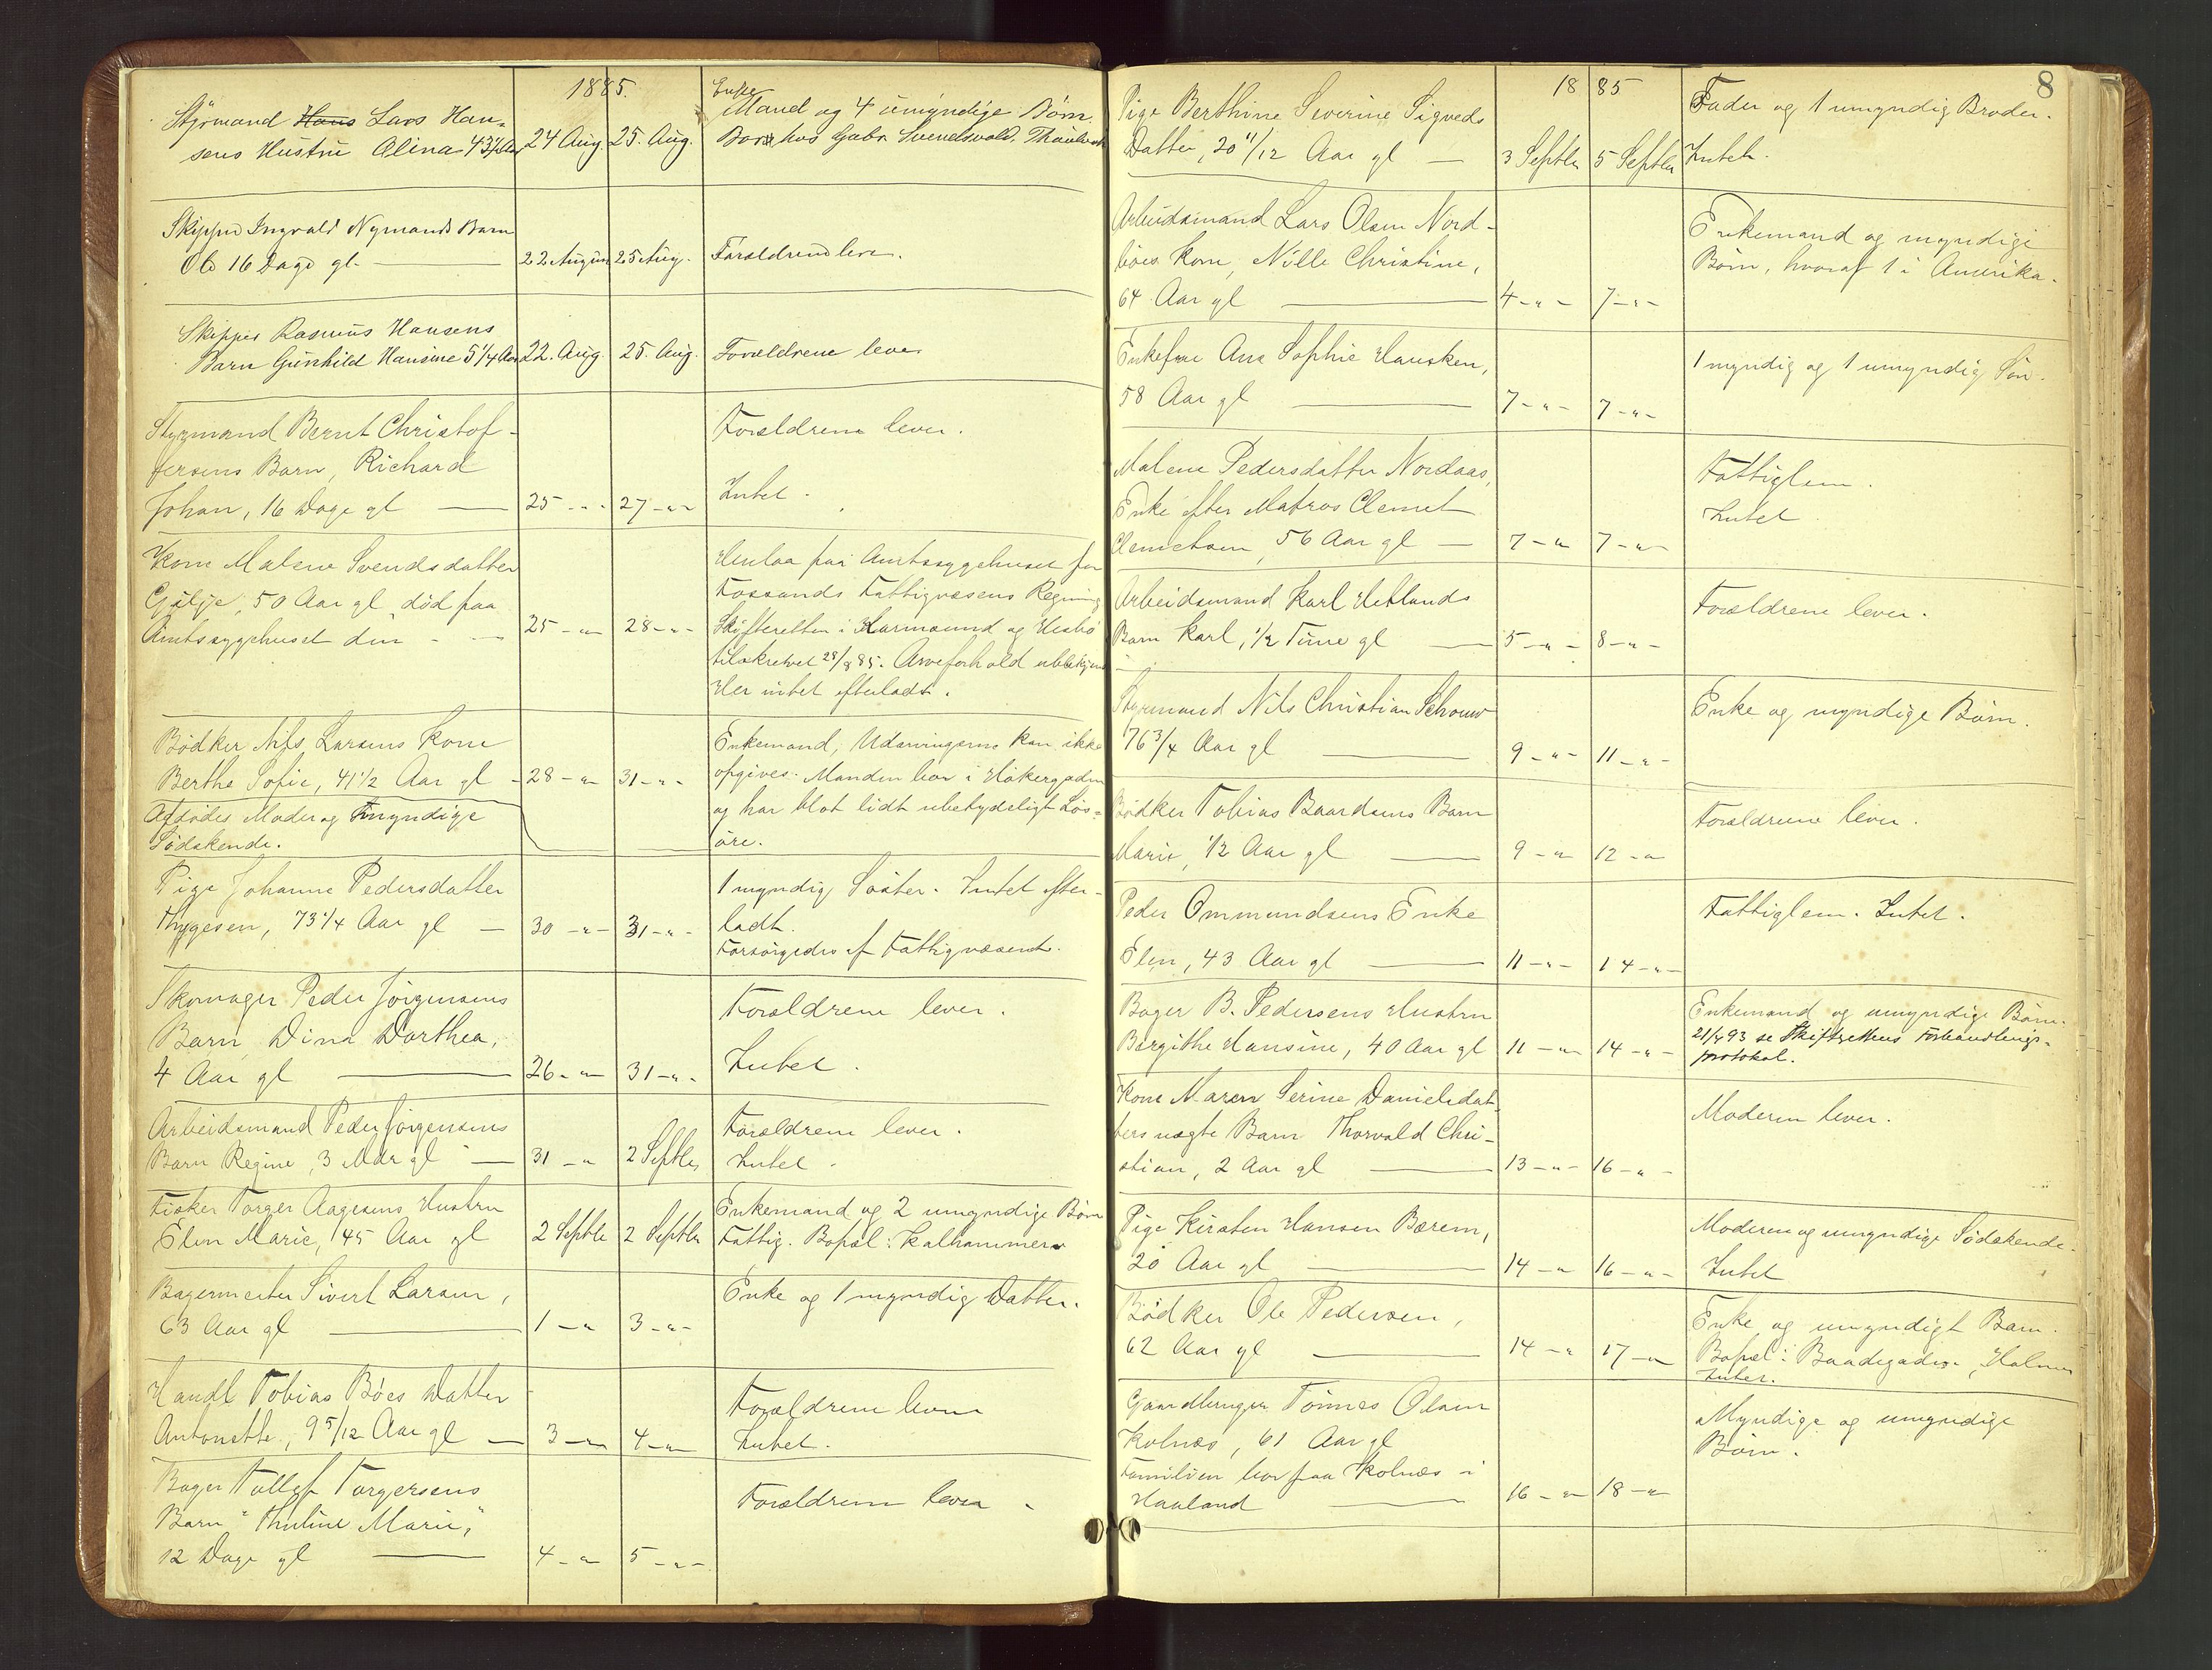 1885.
Styrmand Hans Lars Han-
sens Hustru Olina 43 1/4 Aar
24 Aug
25. Aug.
Enke
Mand og 4 umyndige Børn.
hos Gabr. Svendsvold,
Skipper Ingvald Nymands Barn
Ole 16 Dage gl.
22 August
25 Aug.
Forældrene leve.
Skipper Rasmus Hansens
Barn Gunhild Hansine 5 1/4 Aar
22. Aug.
25. Aug.
Forældrene lever
Styrmand Bernt Christof-
fersens Barn, Richard
Johan, 16 Dage gl
25 - " -
27 - " -
Forældrene lever.
Intet.
Kone Malene Svendsdatter
Gilje, 50 Aar gl, død paa
Amtssygehuset din
25 - " -
28 - " -
Henlaa paa Amtssygehuset for
Fossands Fattigvæsens Regning
Skifteretten i Karmsund og Hesbø
tilskrevet 28/8 85. Arveforhold ubekjend
Her intet efterladt.
Bødker Nils Larsens Kone
Berthe Sofie, 41 1/2 Aar gl
28 - " -
31 - " -
Afdødes Moder og myndige
Sødskende.
Enkemand, Udarvingerne kan ikke
opgives. Manden bor i Høkergaden
og har blot lidt ubetydeligt Løs-
øre.
Pige Johanne Pedersdatter
Thygesen, 73 1/4 Aar gl
30 - " -
31 - " -
1 myndig Søster. Intet efter-
ladt.
Forsørgedes af Fattigvæsenet.
Skomager Peder Jørgensens
Barn Dina Dorthea,
4 Aar gl
26 - " -
31 - " -
Forældrene lever.
Intet.
Arbeidsmand Peder Jørgensens
Barn Regine, 3 Mdr gl
31 - "
2 Septbr
Forældrene lever.
Intet.
Fisker Torger Aagesens Hustru
Elen Marie, 45 Aar gl
2 Septbr
2 Septbr
Enkemand og 2 umyndige Børn
Fattig. Bopæl: Kalhammeren
Bagermester Sivert Larsen,
63 Aar gl
1 - "
3 - " -
Enke og 1 myndig Datter.
Handl Tobias Böes Datter
Antonette, 9 5/12 Aar gl
3 - "
4 - "
Forældrene leve
Intet.
Bager Tollef Torgersens
Barn "Thuline Marie,"
12 Dage gl
4 - "
5 - " -
Forældrene lever
8
1885
Pige Berthine Severine Sigveds
Datter, 20 11/12 Aar gl
3 Septbr
5 Septbr
Fader og 1 umyndig Broder.
Intet.
Arbeidsmand Lars Olsen Nord-
böes Kone, Nille Christine,
64 Aar gl
4 - " -
7 - " -
Enkemand og myndige
Børn, hvoraf 1 i Amerika.
Enkefrue Ane Sophie Hausken,
58 Aar gl
7 - " -
7 - " -
1 myndig og 1 umyndig Søn.
Malene Pedersdatter Nordaas,
Enke efter Matros Clemet
Clemetsen, 56 Aar gl
7 - "
7 - " -
Fattiglem.
Intet
Arbeidsmand Karl Hetlands
Barn Karl, 1/2 Time gl
5 - " -
8 - " -
Forældrene lever.
Styrmand Nils Christian Schouw
76 3/4 Aar gl
9 - " -
11 - " -
Enke og myndige Børn.
Bødker Tobias Baardsens Barn
Marie, 1/2 Aar gl
9 - "
12 - "
Forældrene lever.
Peder Ommundsens Enke
Elen, 43 Aar gl
11 - " -
14 - " -
Fattiglem. Intet.
Bager B. Pedersens Hustru
Bergithe Hansine, 40 Aar gl
11 - "
14 - " -
Enkemand og umyndige Børn.
21/4 93 se Skifterettens Forhandlings-
protokol.
Kone Maren Serine Danielsdat-
ters uægte Barn Thorvald Chri-
stian, 2 Aar gl
13 - " -
16 - " -
Moderen lever.
Pige Kirsten Hansen Bærem,
20 Aar gl
14 - "
16 - " -
Moderen og umyndige Sødskende.
Intet
Bødker Ole Pedersen,
62 Aar gl
14 - "
17 - "
Enke og umyndigt Barn.
Bopæl: Baadegaden, Holmen
Intet.
Gaardbruger Tønnes Olsen
Kolnes, 61 Aar gl
Familien bor paa Kolnes i
Haaland
16 - "
18 - "
Myndige og umyndige
Børn.